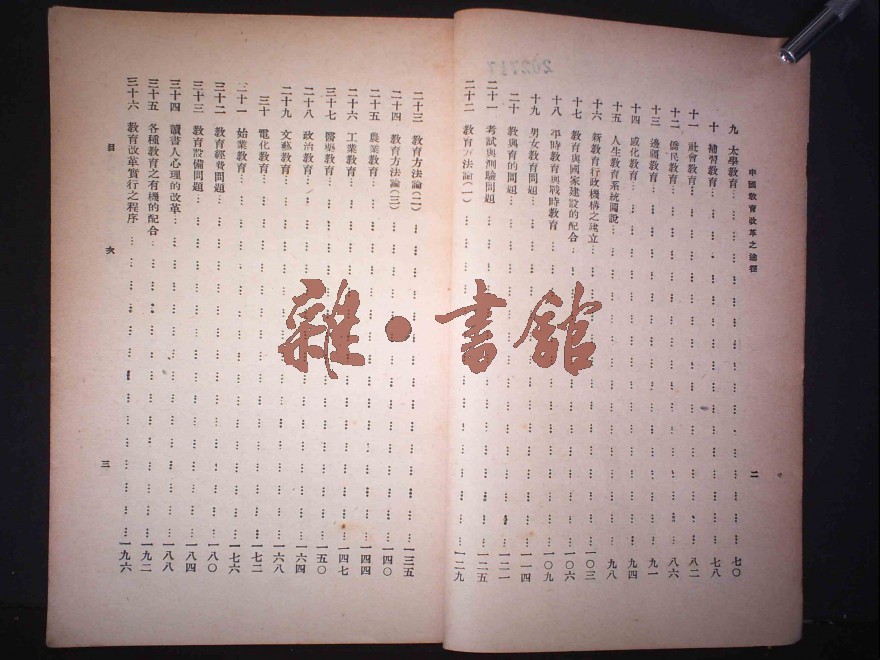 中國教育改革之途徑
二
九 大學教育 七〇
十 補習教育 七八
十一 社會教育 八二
十二 僑民教育 八六
十三 邊疆教育 九一
十四 感化教育 九四
十五 人生教育系統圖說 九八
十六 新教育行政機構之建立 一〇三
十七 教育與國家建設的配合 一〇六
十八 平時教育與戰時教育 一〇九
十九 男女教育問題 一一四
二十 教與育的問題 一二一
二十一 考試與測驗問題 一二五
二十二 教育方法論(一) 一二九
二十三 教育方法論(二) 一三五
二十四 教育方法論(三) 一四〇
二十五 農業教育 一四四
二十六 工業教育 一四七
二十七 醫藥教育 一五〇
二十八 政治教育 一六四
二十九 文藝教育 一六八
三十 電化教育 一七二
三十一 始業教育 一七六
三十二 教育經費問題 一八〇
三十三 教育設備問題 一八四
三十四 讀書人心理的改革 一八八
三十五 各種教育之有機的配合 一九二
三十六 教育改革實行之程序 一九六
目次
三
雜·書館